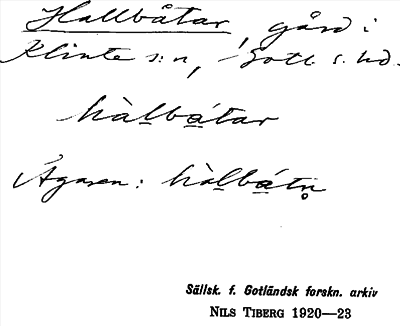 Hallbåtar, gård i
Klinte s:n, Gotl. s. hd.
hàlbátar
Ägaren: hàlbátn̥
Sällsk. f. Gotländsk forskn. arkiv
NILS TIBERG 1920—23